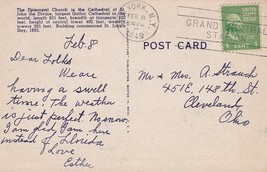 The Episcopal Church is the Cathedral of St.
John the Divine, largest Gothic Cathedral in the
world, length 601 feet, breadth at transepts 320
feet, height of central tower 400 feet, width 200
feet. Building commenced St. John's
Day, 1892.
YORK, N.Y.
FEB 8
1949
GRAND
ST
1¢
POST CARD
Feb. 8
Dear Folks
We are
having a swell
time. The weather
is just perfect. No snow.
I am glad I am here
instead of Florida
Love
Esther
Mr & Mrs. A. Strauch
451 E. 148th St.
Cleveland
Ohio